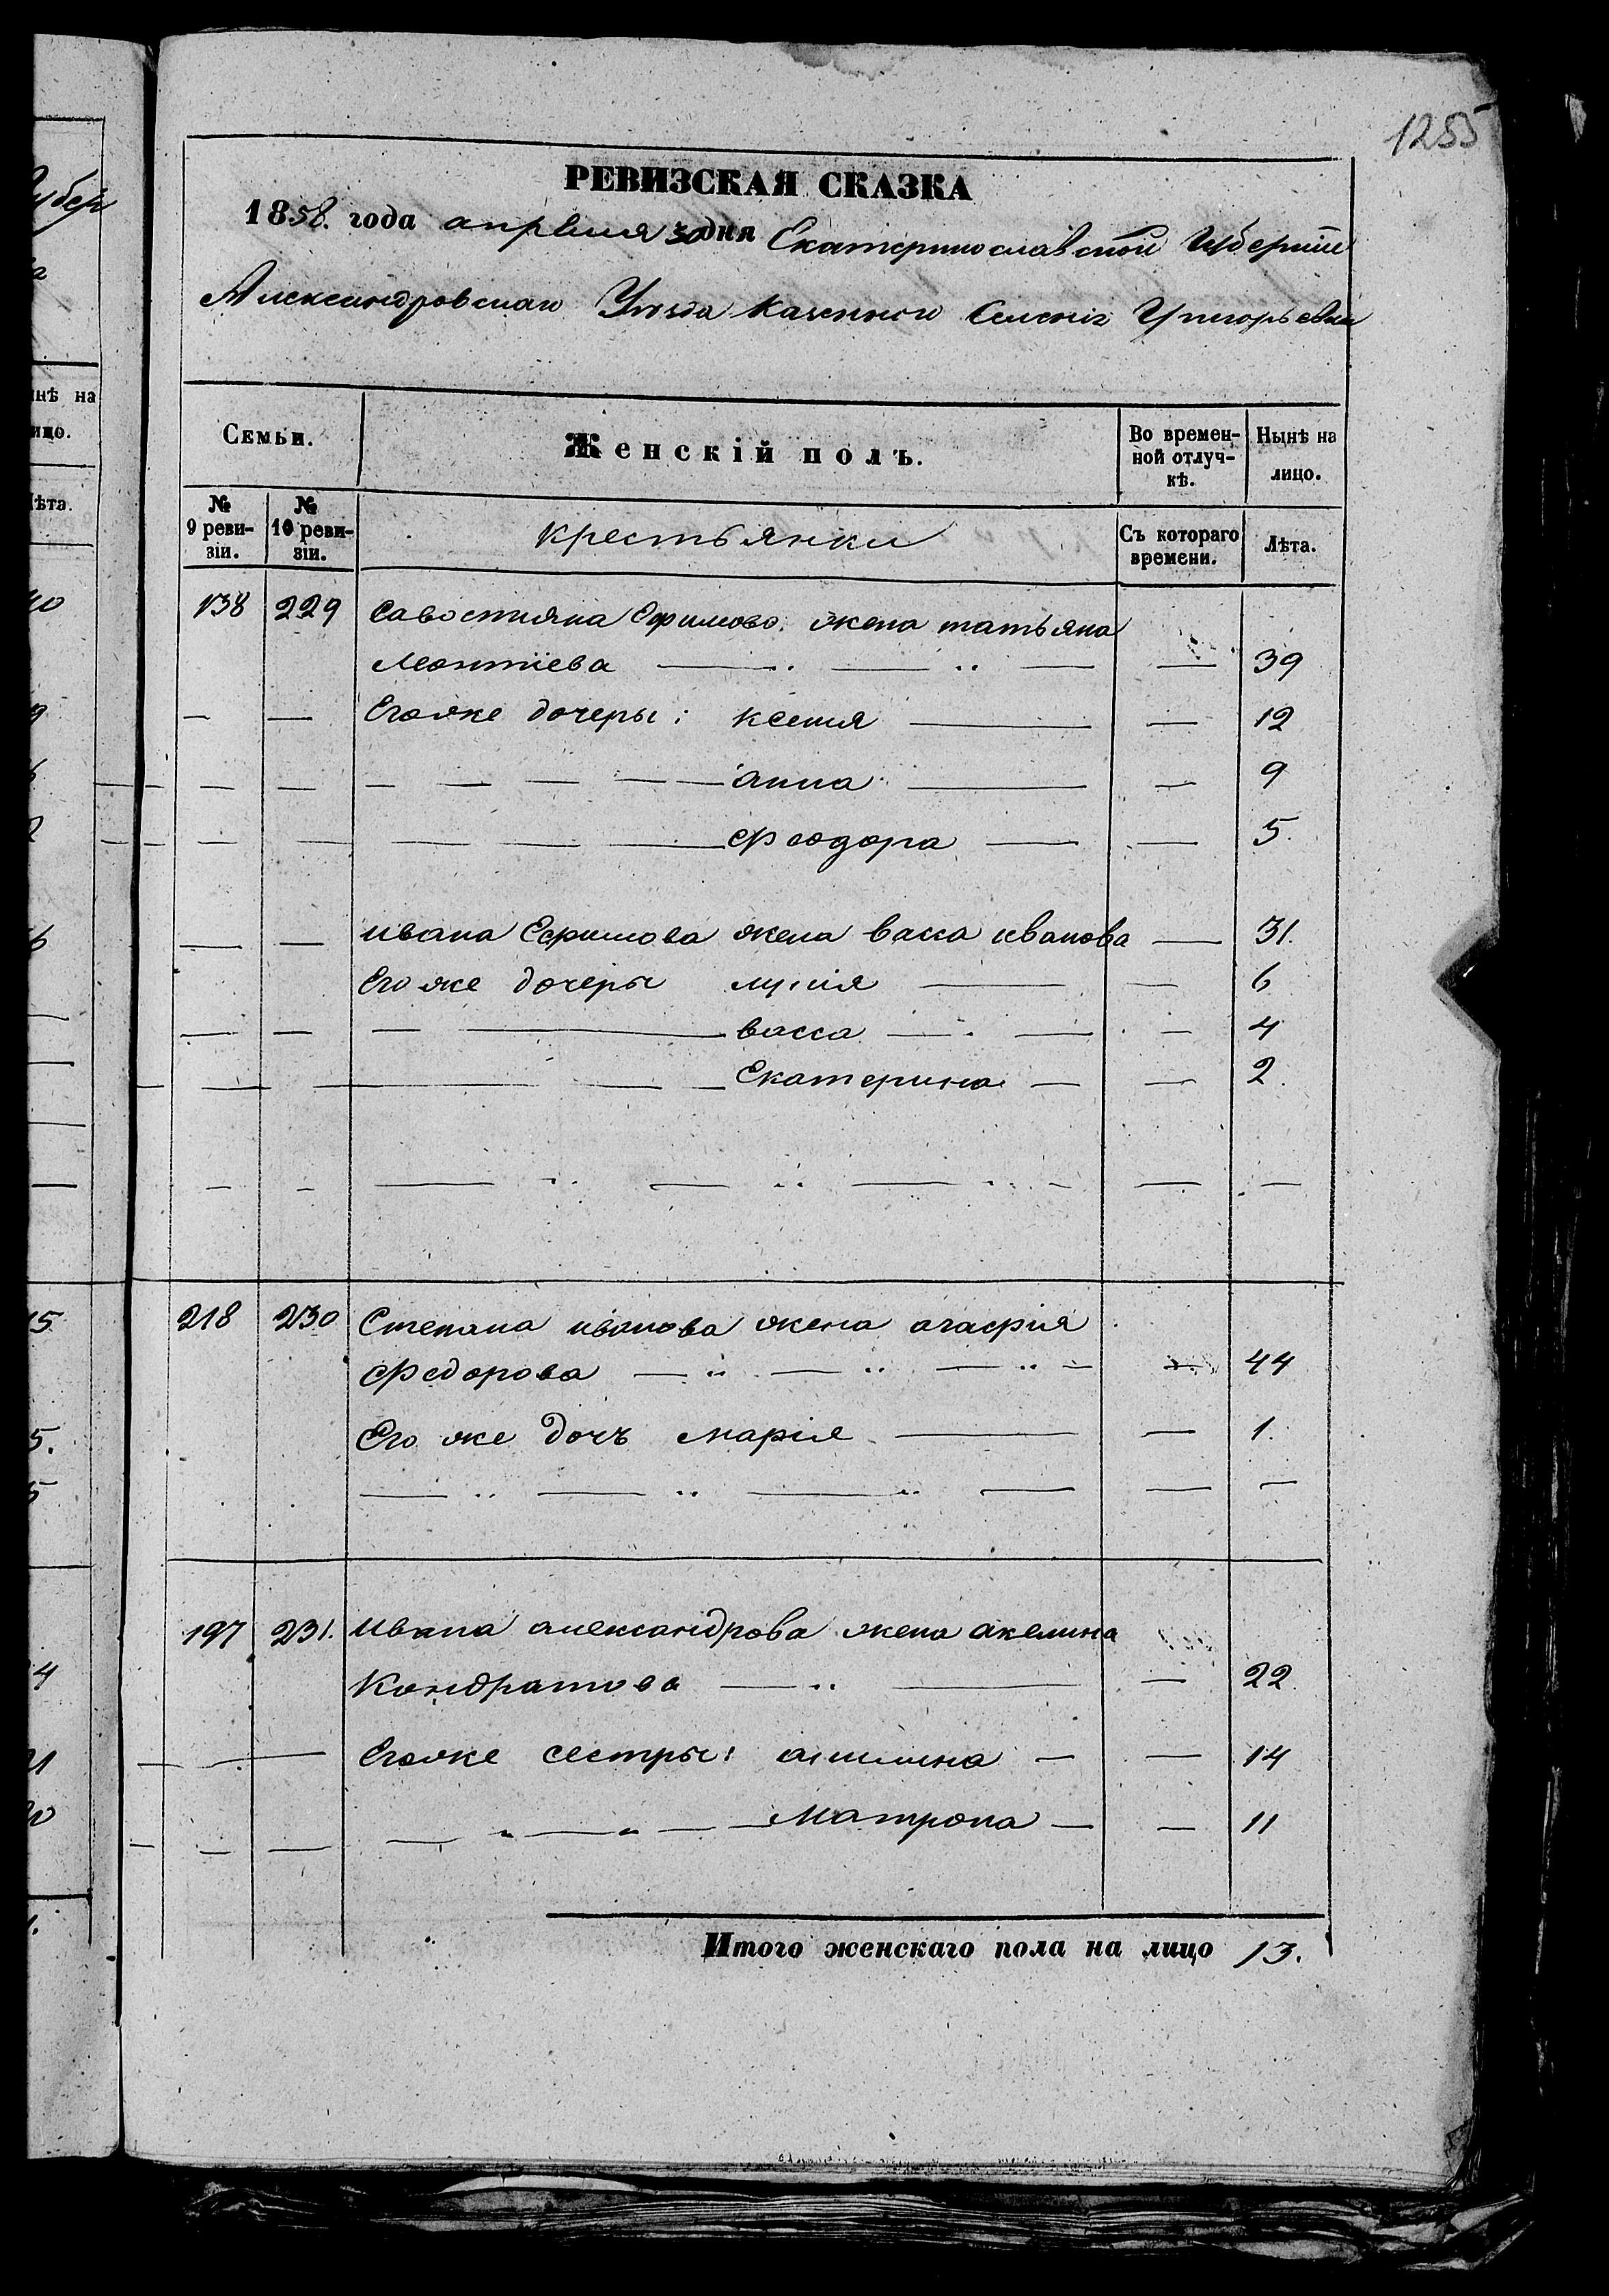 1255
РЕВИЗСКАЯ СКАЗКА
1858. года апреля 30 дня Екатеринославской Губернии
Александровскаго Уезда Казеннаго Селенія Григорьевки
Семьи.
Женскій полъ.
Во времен-
ной отлуч-
кѣ.
Нынѣ на
лицо.
№
9 реви-
зіи.
№
10 реви-
зіи.
крестьянки
Съ котораго
времени.
Лѣта.
138 229 Савостияна Ефимова жена татьяна
Леонтіева — — — 39
— — Егоже дочеры: ксения — — 12
— — — — — — анна — — 9
— — — — — Феодора — — 5
— — ивана Ефимова жена васса иванова — 31.
Его же дочеры — — 6
— — — — васса — — — 4
— — — — — Екатерина — — 2.
218 230 Степана иванова жена агафия
Федорова — — — — 44
Его же дочъ марія — — 1.
197 231. Ивана александрова жена акелина
Кондратова — — — 22
— — Егоже сестры: — — 14
— — — — — Матрона — — 11
Итого женскаго пола на лицо 13.